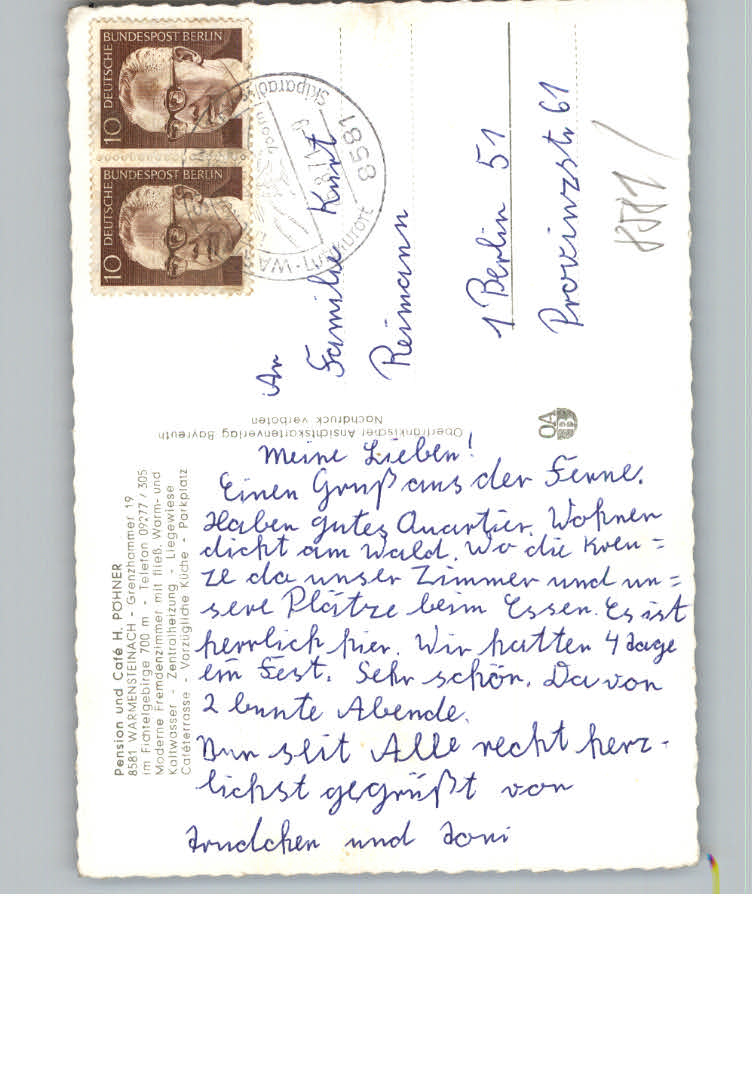 Meine Lieben!
Einen Gruß aus der Ferne.
Haben gutes Quartier. Wohnen
dicht am Wald. Wo die Kreu=
ze da unser Zimmer und un=
sere Plätze beim Essen. Es ist
herrlich hier. Wir hatten 4 Tage
ein Fest. Sehr schön. Davon
2 bunte Abende.
Nun seit Alle recht herz-
lichst gegrüßt von
Trudchen und Toni
An
Familie Kurt
Reimann
1 Berlin 51
Provinzstr 61
8581
Pension und Café H. PÖHNER
8581 WARMENSTEINACH - Grenzhammer 19
im Fichtelgebirge 700 m - Telefon 09277 / 305
Moderne Fremdenzimmer mit fließ. Warm- und
Kaltwasser - Zentralheizung - Liegewiese
Caféterrasse - Vorzügliche Küche - Parkplatz
Oberfränkischer Ansichtskartenverlag Bayreuth
Nachdruck verboten
OA
DEUTSCHE BUNDESPOST BERLIN
10
DEUTSCHE BUNDESPOST BERLIN
10
8581
Skiparadies